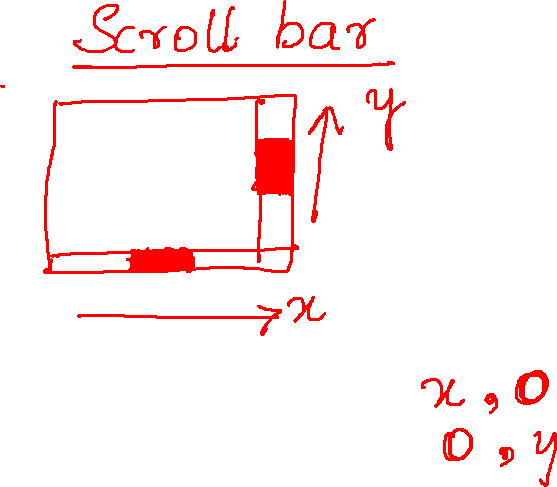 Scroll bar
y
x
x, 0
0, y